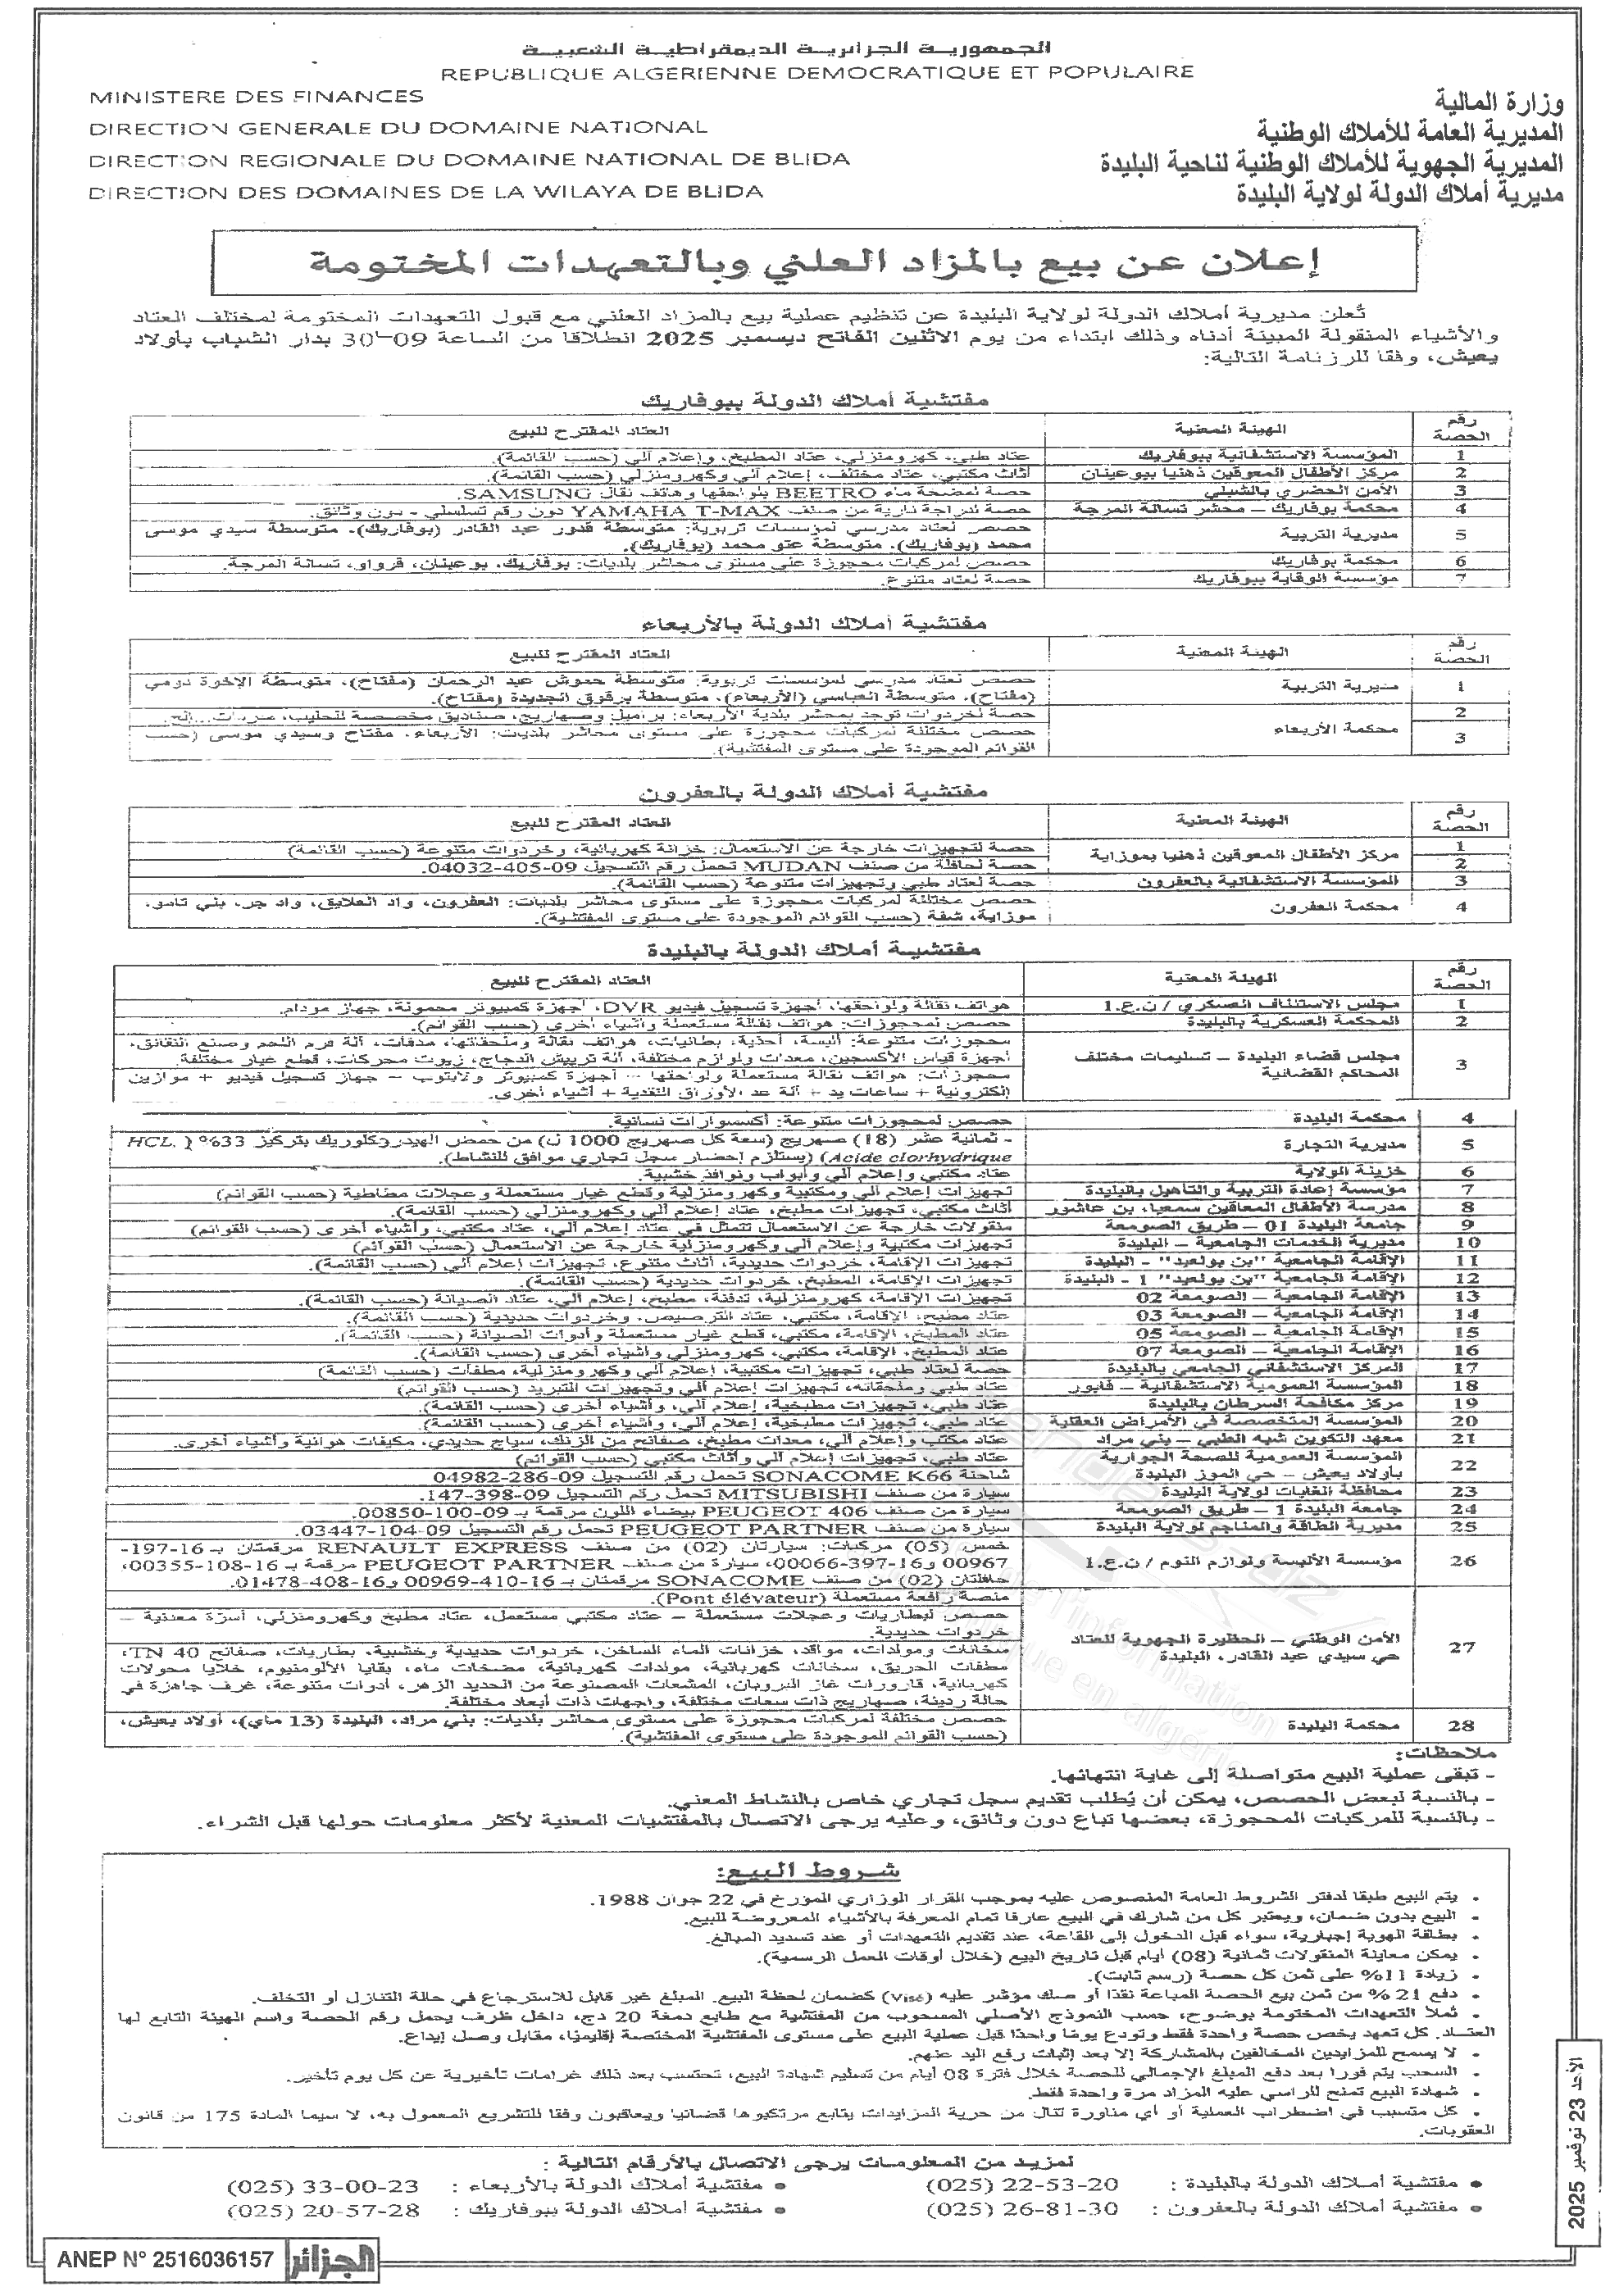 الجمهورية الجزائرية الديمقراطية الشعبية
REPUBLIQUE ALGERIENNE DEMOCRATIQUE ET POPULAIRE
MINISTERE DES FINANCES
DIRECTION GENERALE DU DOMAINE NATIONAL
DIRECTION REGIONALE DU DOMAINE NATIONAL DE BLIDA
DIRECTION DES DOMAINES DE LA WILAYA DE BLIDA
وزارة المالية
المديرية العامة للأملاك الوطنية
المديرية الجهوية للأملاك الوطنية لناحية البليدة
مديرية أملاك الدولة لولاية البليدة
إعلان عن بيع بالمزاد العلني وبالتعهدات المختومة
تُعلن مديرية أملاك الدولة لولاية البليدة عن تنظيم عملية بيع بالمزاد العلني مع قبول التعهدات المختومة لمختلف العتاد
والأشياء المنقولة المبينة أدناه وذلك ابتداء من يوم الاثنين الفاتح ديسمبر 2025 انطلاقا من الساعة 09-30 بدار الشباب بأولاد
يعيش، وفقا للرزنامة التالية:
مفتشية أملاك الدولة ببوفاريك
رقم الحصة | الهيئة المعنية | العتاد المقترح للبيع
1 | المؤسسة الاستشفائية ببوفاريك | عتاد طبي، كهرومنزلي، عتاد المطبخ، وإعلام آلي (حسب القائمة).
2 | مركز الأطفال المعوقين ذهنيا ببوعينان | أثاث مكتبي، عتاد مختلف، إعلام آلي وكهرومنزلي (حسب القائمة).
3 | الأمن الحضري بالشبلي | حصة لمضخة ماء BEETRO بلواحقها وهاتف نقال SAMSUNG.
4 | محكمة بوفاريك – محشر تسالة المرجة | حصة لدراجة نارية من صنف YAMAHA T-MAX دون رقم تسلسلي - بدون وثائق.
5 | مديرية التربية | حصص لعتاد مدرسي لمؤسسات تربوية: متوسطة قدور عبد القادر (بوفاريك)، متوسطة سيدي موسى
محمد (بوفاريك)، متوسطة عتو محمد (بوفاريك).
6 | محكمة بوفاريك | حصص لمركبات محجوزة على مستوى محاشر بلديات: بوفاريك، بوعينان، قرواو، تسالة المرجة.
7 | مؤسسة الوقاية ببوفاريك | حصة لعتاد متنوع.
مفتشية أملاك الدولة بالأربعاء
رقم الحصة | الهيئة المعنية | العتاد المقترح للبيع
1 | مديرية التربية | حصص لعتاد مدرسي لمؤسسات تربوية: متوسطة حموش عبد الرحمان (مفتاح)، متوسطة الإخوة دومي
(مفتاح)، متوسطة العباسي (الأربعاء)، متوسطة برقوق الجديدة (مفتاح).
2 | محكمة الأربعاء | حصة لخردوات توجد بمحشر بلدية الأربعاء: براميل وصهاريج، صناديق مخصصة للحليب، ...الخ.
3 | حصص مختلفة لمركبات محجوزة على مستوى محاشر بلديات: الأربعاء، مفتاح وسيدي موسى (حسب
القوائم الموجودة على مستوى المفتشية).
مفتشية أملاك الدولة بالعفرون
رقم الحصة | الهيئة المعنية | العتاد المقترح للبيع
1 | مركز الأطفال المعوقين ذهنيا بموزاية | حصة لتجهيزات خارجة عن الاستعمال: خزانة كهربائية، وخردوات متنوعة (حسب القائمة)
2 | حصة لحافلة من صنف MUDAN تحمل رقم التسجيل 09-405-04032.
3 | المؤسسة الاستشفائية بالعفرون | حصة لعتاد طبي وتجهيزات متنوعة (حسب القائمة).
4 | محكمة العفرون | حصص مختلفة لمركبات محجوزة على مستوى محاشر بلديات: العفرون، واد العلايق، واد جر، بني تامو،
موزاية، شفة (حسب القوائم الموجودة على مستوى المفتشية).
مفتشية أملاك الدولة بالبليدة
رقم الحصة | الهيئة المعنية | العتاد المقترح للبيع
1 | مجلس الاستئناف العسكري / ن.ع.1 | هواتف نقالة ولواحقها، أجهزة تسجيل فيديو DVR، أجهزة كمبيوتر محمولة، جهاز مودام.
2 | المحكمة العسكرية بالبليدة | حصص لمحجوزات: هواتف نقالة مستعملة وأشياء أخرى (حسب القوائم).
3 | مجلس قضاء البليدة – تسليمات مختلف المحاكم القضائية | محجوزات متنوعة: ألبسة، أحذية، بطانيات، هواتف نقالة وملحقاتها، مدفآت، آلة فرم اللحم وصنع النقانق،
أجهزة قياس الأكسجين، معدات ولوازم مختلفة، آلة ترييش الدجاج، زيوت محركات، قطع غيار مختلفة.
محجوزات: هواتف نقالة مستعملة ولواحقها – أجهزة كمبيوتر ولابتوب – جهاز تسجيل فيديو + موازين
إلكترونية + ساعات يد + آلة عد الأوراق النقدية + أشياء أخرى.
4 | محكمة البليدة | حصص لمحجوزات متنوعة: أكسسوارات نسائية.
5 | مديرية التجارة | - ثمانية عشر (18) صهريج (سعة كل صهريج 1000 ل) من حمض الهيدروكلوريك بتركيز 33% ( HCL.
Acide clorhydrique) (يستلزم إحضار سجل تجاري موافق للنشاط).
6 | خزينة الولاية | عتاد مكتبي وإعلام آلي وأبواب ونوافذ خشبية.
7 | مؤسسة إعادة التربية والتأهيل بالبليدة | تجهيزات إعلام آلي ومكتبية وكهرومنزلية وقطع غيار مستعملة وعجلات مطاطية (حسب القوائم)
8 | مدرسة الأطفال المعاقين سمعيا، بن عاشور | أثاث مكتبي، تجهيزات مطبخ، عتاد إعلام آلي وكهرومنزلي (حسب القائمة).
9 | جامعة البليدة 01 – طريق الصومعة | منقولات خارجة عن الاستعمال تتمثل في عتاد إعلام آلي، عتاد مكتبي، وأشياء أخرى (حسب القوائم)
10 | مديرية الخدمات الجامعية – البليدة | تجهيزات مكتبية وإعلام آلي وكهرومنزلية خارجة عن الاستعمال (حسب القوائم)
11 | الإقامة الجامعية "بن بولعيد" - البليدة | تجهيزات الإقامة، خردوات حديدية، أثاث متنوع، تجهيزات إعلام آلي (حسب القائمة).
12 | الإقامة الجامعية "بن بولعيد" 1 - البليدة | تجهيزات الإقامة، المطبخ، خردوات حديدية (حسب القائمة).
13 | الإقامة الجامعية – الصومعة 02 | تجهيزات الإقامة، كهرومنزلية، تدفئة، مطبخ، إعلام آلي، عتاد الصيانة (حسب القائمة).
14 | الإقامة الجامعية – الصومعة 03 | عتاد مطبخ، الإقامة، مكتبي، عتاد الترصيص، وخردوات حديدية (حسب القائمة).
15 | الإقامة الجامعية – الصومعة 05 | عتاد المطبخ، الإقامة، مكتبي، قطع غيار مستعملة وأدوات الصيانة (حسب القائمة).
16 | الإقامة الجامعية – الصومعة 07 | عتاد المطبخ، الإقامة، مكتبي، كهرومنزلي وأشياء أخرى (حسب القائمة).
17 | المركز الاستشفائي الجامعي بالبليدة | حصة لعتاد طبي، تجهيزات مكتبية، إعلام آلي وكهرومنزلية، مطفآت (حسب القائمة)
18 | المؤسسة العمومية الاستشفائية – فابور | عتاد طبي وملحقاته، تجهيزات إعلام آلي وتجهيزات التبريد (حسب القوائم)
19 | مركز مكافحة السرطان بالبليدة | عتاد طبي، تجهيزات مطبخية، إعلام آلي، وأشياء أخرى (حسب القائمة).
20 | المؤسسة المتخصصة في الأمراض العقلية | عتاد طبي، تجهيزات مطبخية، إعلام آلي، وأشياء أخرى (حسب القائمة).
21 | معهد التكوين شبه الطبي – بني مراد | عتاد مكتب وإعلام آلي، معدات مطبخ، صفائح من الزنك، سياج حديدي، مكيفات هوائية وأشياء أخرى.
22 | المؤسسة العمومية للصحة الجوارية بأولاد يعيش – حي الموز البليدة | عتاد طبي، تجهيزات إعلام آلي وأثاث مكتبي (حسب القوائم)
شاحنة SONACOME K66 تحمل رقم التسجيل 09-286-04982
23 | محافظة الغابات لولاية البليدة | سيارة من صنف MITSUBISHI تحمل رقم التسجيل 09-398-147.
24 | جامعة البليدة 1 – طريق الصومعة | سيارة من صنف PEUGEOT 406 بيضاء اللون مرقمة بـ 09-100-00850.
25 | مديرية الطاقة والمناجم لولاية البليدة | سيارة من صنف PEUGEOT PARTNER تحمل رقم التسجيل 09-104-03447.
26 | مؤسسة الألبسة ولوازم النوم / ن.ع.1 | خمس (05) مركبات: سيارتان (02) من صنف RENAULT EXPRESS مرقمتان بـ 16-197-
00967 و16-397-00066، سيارة من صنف PEUGEOT PARTNER مرقمة بـ 16-108-00355،
حافلتان (02) من صنف SONACOME مرقمتان بـ 16-410-00969 و16-408-01478.
27 | الأمن الوطني – الحظيرة الجهوية للعتاد حي سيدي عبد القادر، البليدة | منصة رافعة مستعملة (Pont élévateur).
حصص لبطاريات وعجلات مستعملة – عتاد مكتبي مستعمل، عتاد مطبخ وكهرومنزلي، أسرّة معدنية –
خردوات حديدية.
سخانات ومولدات، مواقد، خزانات الماء الساخن، خردوات حديدية وخشبية، بطاريات، صفائح TN 40،
مطفآت الحريق، سخانات كهربائية، مولدات كهربائية، مضخات ماء، بقايا الألومنيوم، خلايا محولات
كهربائية، قارورات غاز البروبان، المشعات المصنوعة من الحديد الزهر، أدوات متنوعة، غرف جاهزة في
حالة رديئة، صهاريج ذات سعات مختلفة، واجهات ذات أبعاد مختلفة.
28 | محكمة البليدة | حصص مختلفة لمركبات محجوزة على مستوى محاشر بلديات: بني مراد، البليدة (13 ماي)، أولاد يعيش،
(حسب القوائم الموجودة على مستوى المفتشية).
ملاحظات:
- تبقى عملية البيع متواصلة إلى غاية انتهائها.
- بالنسبة لبعض الحصص، يمكن أن يُطلب تقديم سجل تجاري خاص بالنشاط المعني.
- بالنسبة للمركبات المحجوزة، بعضها تباع دون وثائق، وعليه يرجى الاتصال بالمفتشيات المعنية لأكثر معلومات حولها قبل الشراء.
شروط البيع:
• يتم البيع طبقا لدفتر الشروط العامة المنصوص عليه بموجب القرار الوزاري المؤرخ في 22 جوان 1988.
• البيع بدون ضمان، ويعتبر كل من شارك في البيع عارفا تمام المعرفة بالأشياء المعروضة للبيع.
• بطاقة الهوية إجبارية، سواء قبل الدخول إلى القاعة، عند تقديم التعهدات أو عند تسديد المبالغ.
• يمكن معاينة المنقولات ثمانية (08) أيام قبل تاريخ البيع (خلال أوقات العمل الرسمية).
• زيادة 11% على ثمن كل حصة (رسم ثابت).
• دفع 21 % من ثمن بيع الحصة المباعة نقدًا أو صك مؤشر عليه (Visé) كضمان لحظة البيع. المبلغ غير قابل للاسترجاع في حالة التنازل أو التخلف.
• تملأ التعهدات المختومة بوضوح، حسب النموذج الأصلي المسحوب من المفتشية مع طابع دمغة 20 دج، داخل ظرف يحمل رقم الحصة واسم الهيئة التابع لها
العتاد. كل تعهد يخص حصة واحدة فقط وتودع يومًا واحدًا قبل عملية البيع على مستوى المفتشية المختصة إقليميًا، مقابل وصل إيداع.
• لا يسمح للمزايدين المخالفين بالمشاركة إلا بعد إثبات رفع اليد عنهم.
• السحب يتم فورا بعد دفع المبلغ الإجمالي للحصة خلال فترة 08 أيام من تسليم شهادة البيع، تحتسب بعد ذلك غرامات تأخيرية عن كل يوم تأخير.
• شهادة البيع تمنح للراسي عليه المزاد مرة واحدة فقط.
• كل متسبب في اضطراب العملية أو أي مناورة تنال من حرية المزايدات يتابع مرتكبوها قضائيا ويعاقبون وفقا للتشريع المعمول به، لا سيما المادة 175 من قانون
العقوبات.
لمزيد من المعلومات يرجى الاتصال بالأرقام التالية :
• مفتشية أملاك الدولة بالبليدة : 20-53-22 (025)
• مفتشية أملاك الدولة بالأربعاء : 23-00-33 (025)
• مفتشية أملاك الدولة بالعفرون : 30-81-26 (025)
• مفتشية أملاك الدولة ببوفاريك : 28-57-20 (025)
الأحد 23 نوفمبر 2025
ANEP N° 2516036157
الجزائر